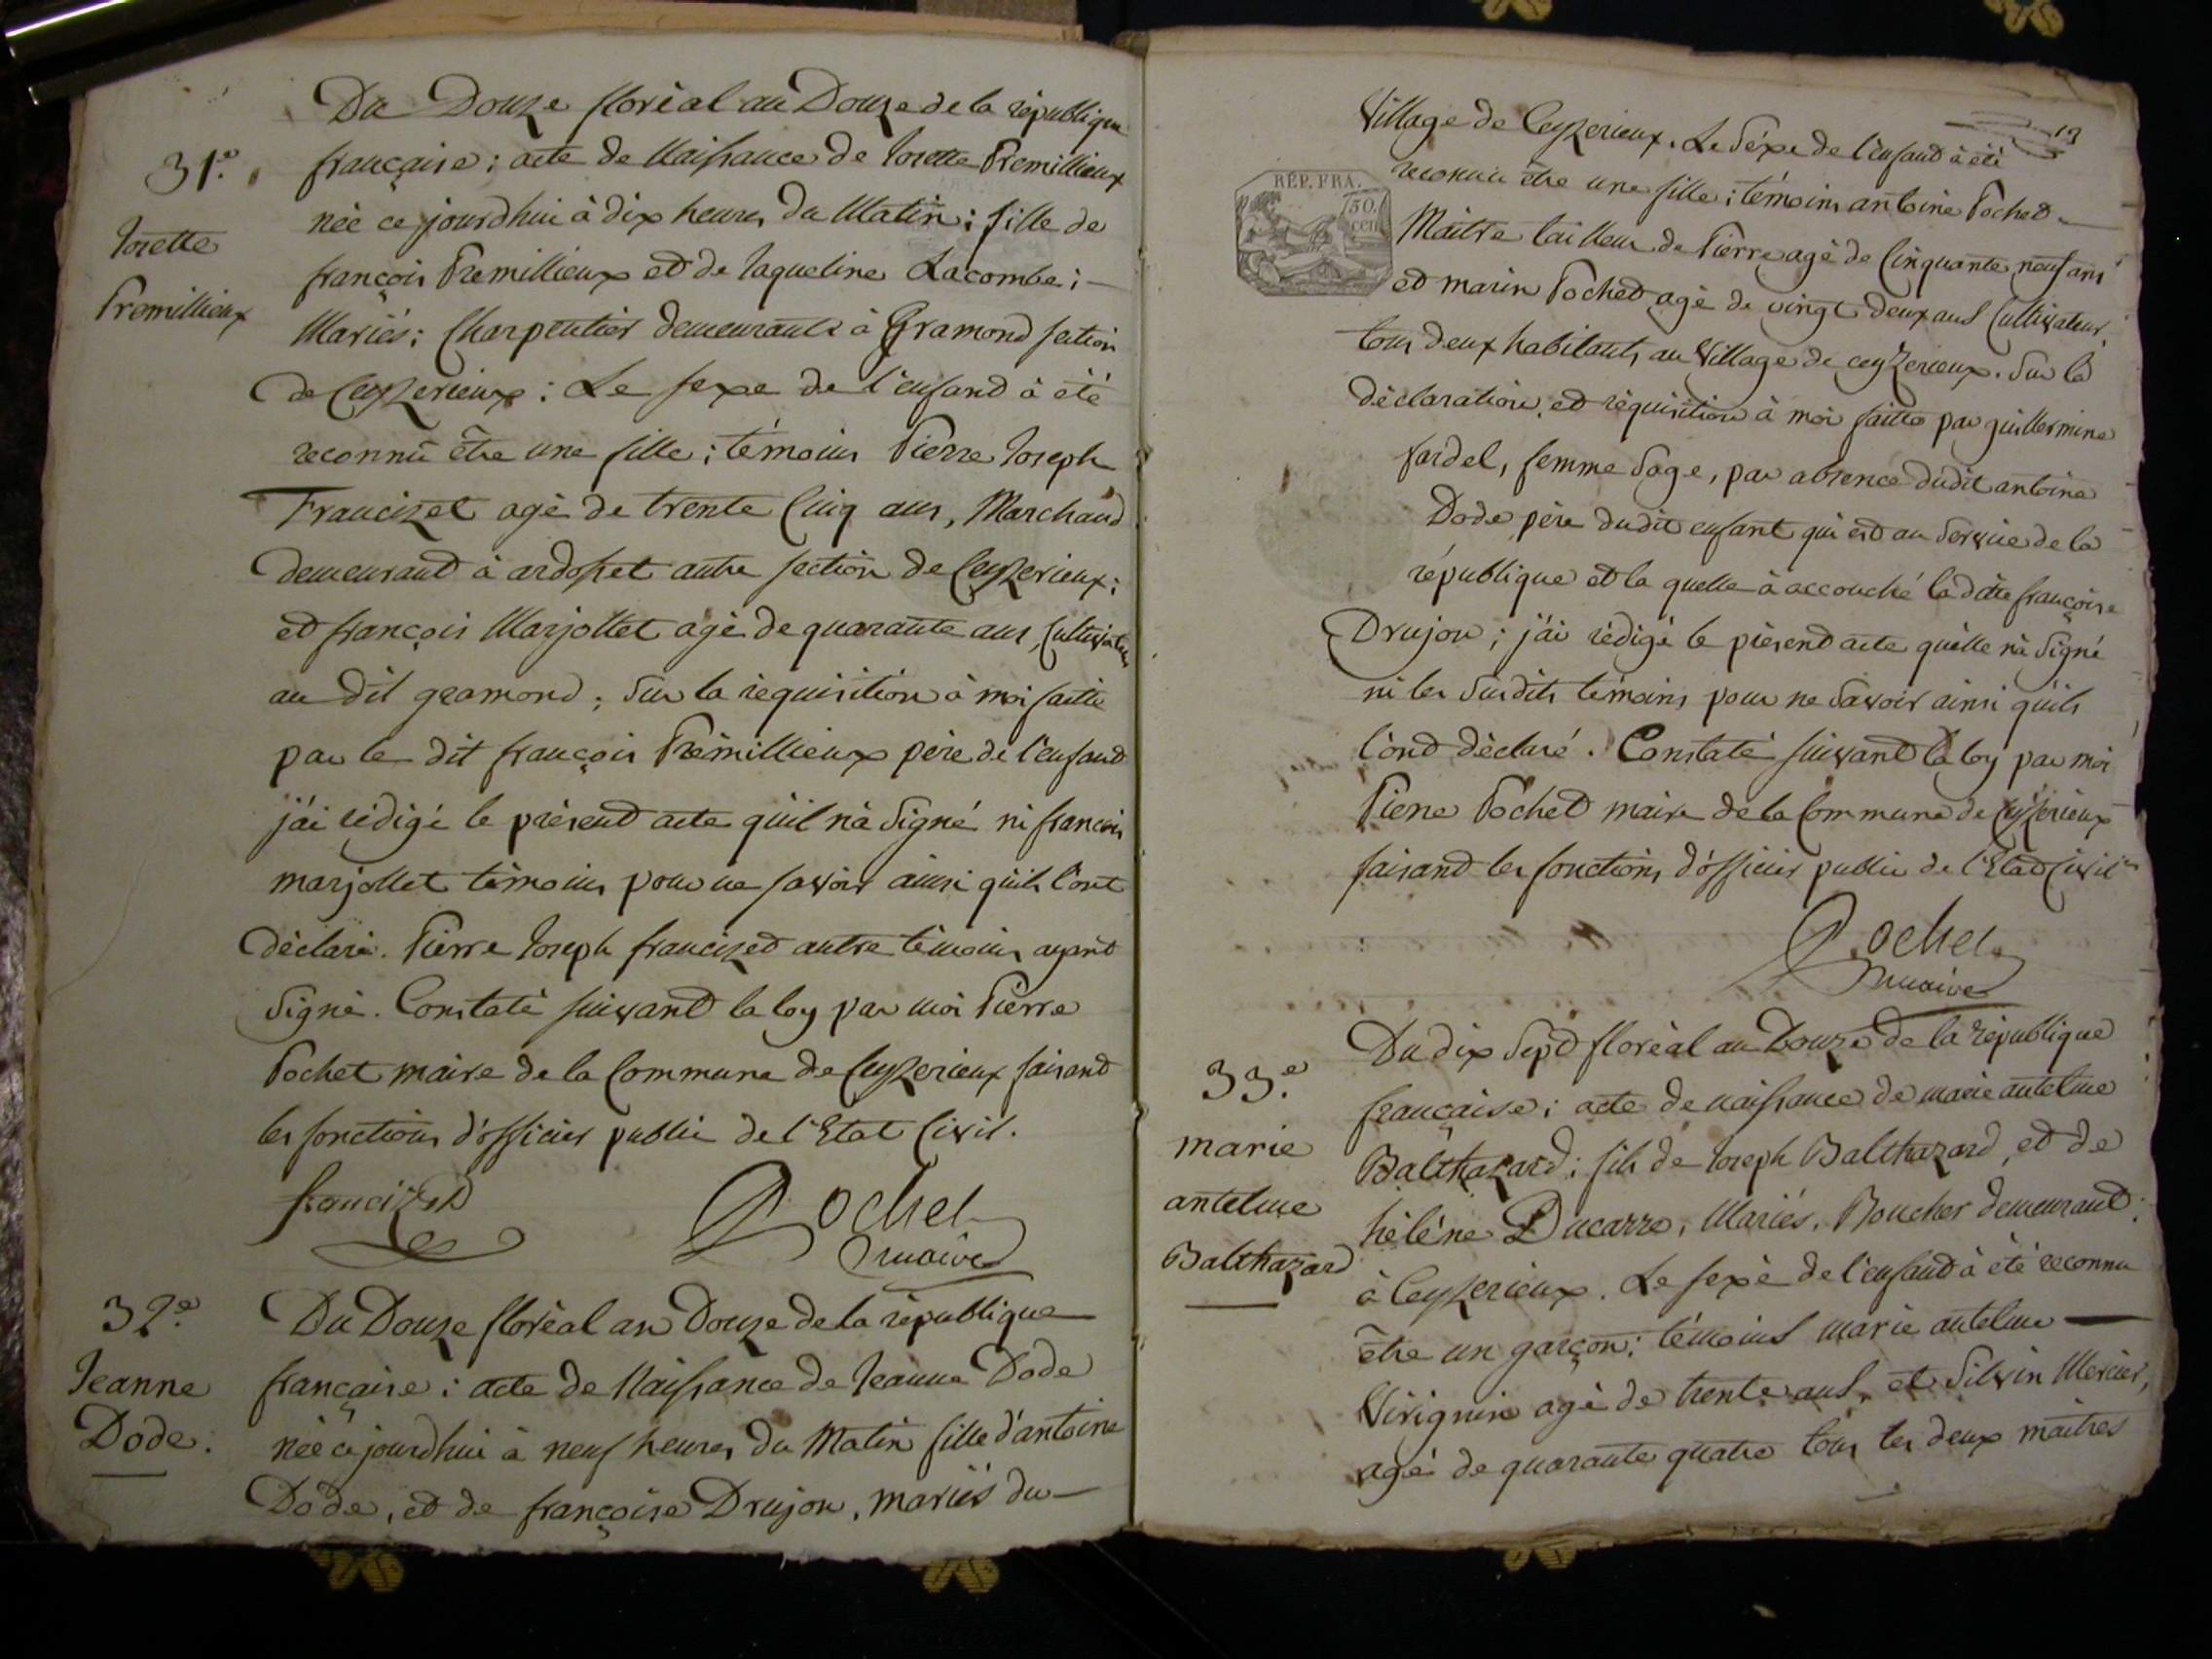 Du Douze floréal an Douze de la république
31.e
française ; acte de Naissance de Josette Premillieux
née ce jourdhui à dix heures du Matin ; fille de
Josette
Premillieux
françois Premillieux et de Jaqueline Lacombe ; —
Mariés ; Charpentier demeurants à Gramond section
de Ceyzerieux : Le sexe de l'enfand à été
reconnû être une fille ; témoins Pierre Joseph
Francizet agé de trente Cinq ans, Marchand
demeurand à ardosset autre section de Ceyzerieux ;
et françois Marjollet agé de quarante ans, Cultivateur
au dit gramond ; Sur la requisition à moi faitte
par le dit françois Prémillieux père de l'enfand
j'ai rédigé le présend acte qu'il n'à Signé ni francois
marjollet témoins pour ne savoir ainsi qu'ils l'ont
déclaré. Pierre Joseph francized autre témoins ayand
Signé. Constaté suivand la loy par moi Pierre
Pochet maire de la Commune de Ceyzerieux faisand
les fonctions d'officier public de l'Etat Civil.
francized
Pochet
maire
32.e
Jeanne
Dode.
Du Douze floréal an Douze de la république
française : acte de Naissance de Jeanne Dode
née ce jourdhui à neuf heures du Matin fille d'antoine
Dode, et de françoise Drujon, mariés du —
13
Village de Ceyzerieux. Le Séxe de l'enfand à été
reconnu être une fille ; témoins antoine Pochet
REP. FRA.
Maître tailleur de Pierre agé de Cinquante neuf ans
et marin Pochet agé de vingt deux ans Cultivateur,
tous deux habitants au Village de ceyzerieux. Sur la
déclaration et réquisition à moi faitte par guillermine
fardel, femme Sage, par absence dudit antoine
Dode père dudit enfant qui est au Service de la
république et la quelle à accouché la dite françoise
Drujon ; j'ai rédigé le présend acte qu'elle n'à Signé
ni les Susdits témoins pour ne Savoir ainsi qu'ils
l'ond déclaré. Constaté suivand la loy par moi
Pierre Pochet maire de la Commune de Ceyzerieux
faisand les fonctions d'officier public de l'Etat Civil
Pochet
maire
33.e
marie
antelme
Balthazard
Du dix Sept floréal an Douze de la république
française ; acte de naissance de marie antelme
Balthazard ; fils de Joseph Balthazard, et de
hélène Ducarre, Mariés, Boucher demeurand
à Ceyzerieux. Le sexe de l'enfand à été reconnu
être un garçon ; témoins marie antelme —
Virignin agé de trente ans, et Silvin Mercier,
agé de quarante quatre tous les deux maîtres